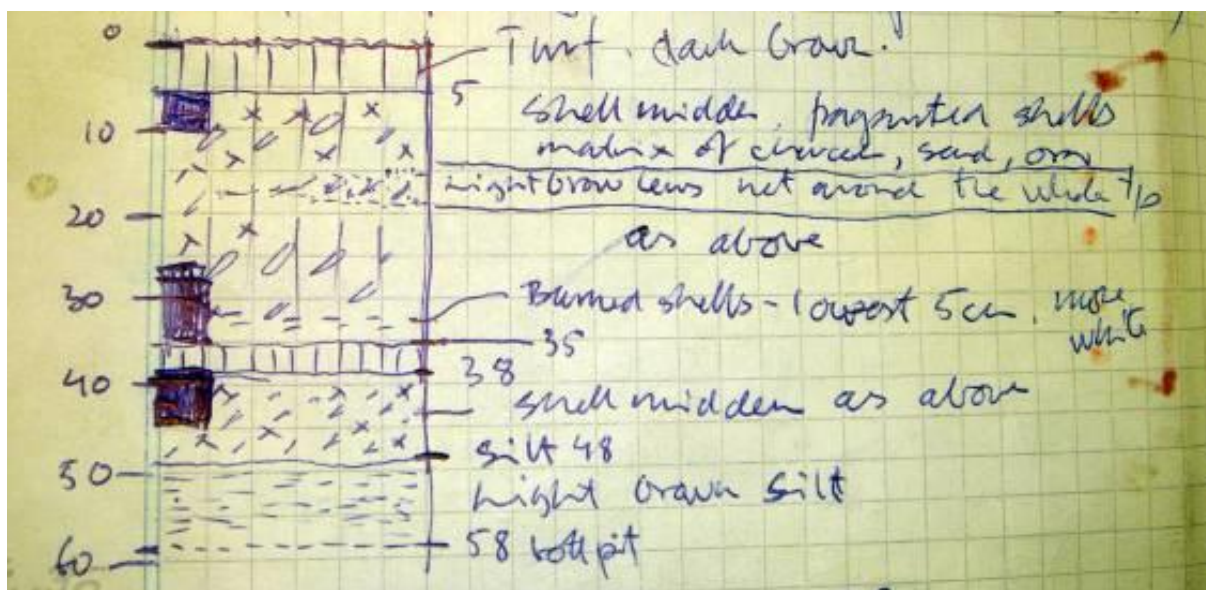 0
Turf. dark brown.
5
shell midden, fragmented shells
10
matrix of charcoal, sand,
Light brown lens not around the whole t/p
20
as above
30
Burned shells - lowest 5cm, more
white
35
38
40
shell midden as above
silt 48
50
Light brown silt
58 bott pit
60